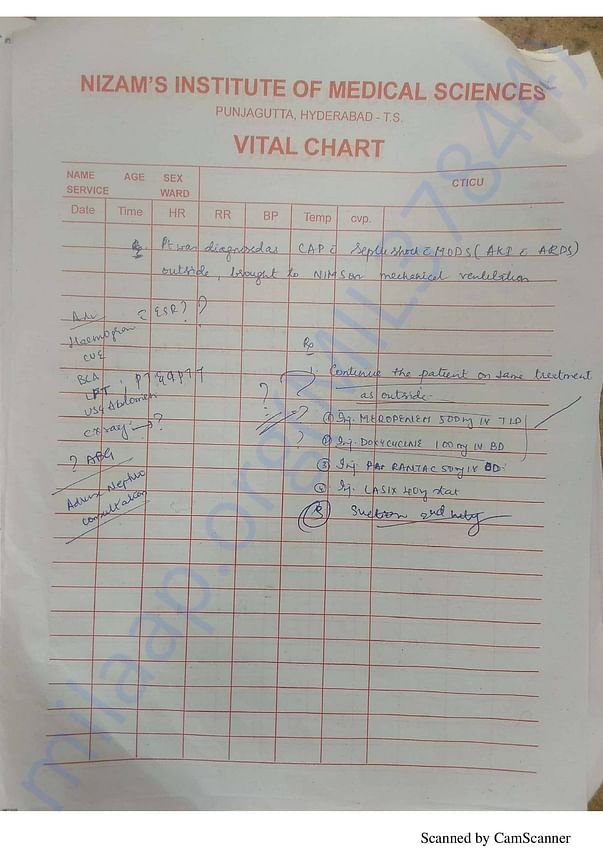 NIZAM'S INSTITUTE OF MEDICAL SCIENCES
PUNJAGUTTA, HYDERABAD - T.S.
VITAL CHART
NAME AGE SEX
SERVICE WARD CTICU
Date Time HR RR BP Temp cvp.
Pt was diagnosed as CAP c Septic shock c MODS (AKI & ARDS)
outside, brought to NIMS on mechanical ventilation
Adv
Haemogram c ESR ? ?
CUE
Rx
BCA
LFT, PT & APTT
USG Abdomen
cxray → ?
? ABG
Advise Nephro
consultation
1. Continue the patient on same treatment
as outside
? ?
① Inj. MEROPENEM 500mg IV TID
② Inj. DOXYCYCLINE 100mg IV BD
③ Inj. RANTAC 50mg IV BD
④ Inj. LASIX 40mg stat
⑤ Suction 2nd hrly
milaap.org/MIL278444
Scanned by CamScanner